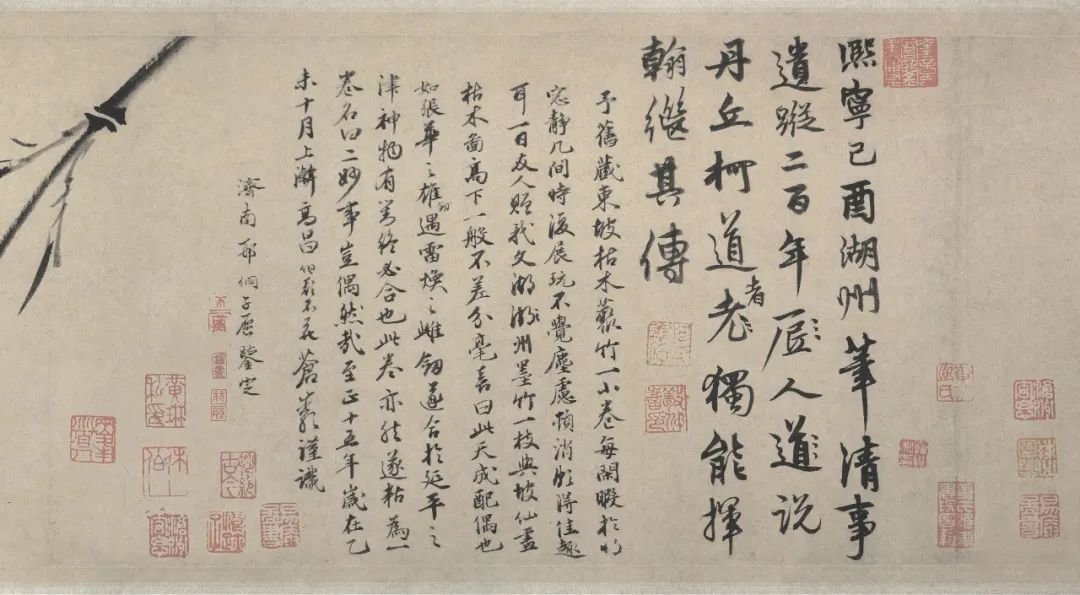 熙寧己酉湖州筆清事
遺蹤二百年人道说
丹丘柯道老者獨能揮
翰繼其傳
予舊藏東坡枯木藂竹一小卷每閑暇於明
窓静几間時復展玩不覺塵慮頓消頗得佳趣
耳一日友人贈我文湖湖州墨竹一枝與坡仙畫
枯木啚高下一般不差分毫喜曰此天成配偶也
如張華之雄劒遇雷煥之雌劒遂合於延平之
津神物有終必合也此卷亦然遂粘為一
卷名曰二妙事豈偶然哉至正十五年歲在乙
未十月上澣高昌伯顏不花蒼巖謹識
濟南邢侗子愿鑒定